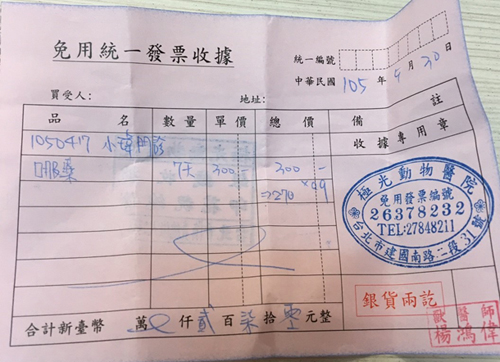 免用統一發票收據
統一編號
中華民國 105 年 4 月 30 日
買受人: 地址:
品名 數量 單價 總價 備註
1050417 門診
收據專用章
口服藥 7天 300- 300-
→270 ×0.9
極光動物醫院
免用發票編號
26378232
TEL:27848211
台北市建國南路二段31號
銀貨兩訖
獸醫師
楊鴻偉
合計新臺幣 萬 仟 貳 百 柒 拾 零 元整